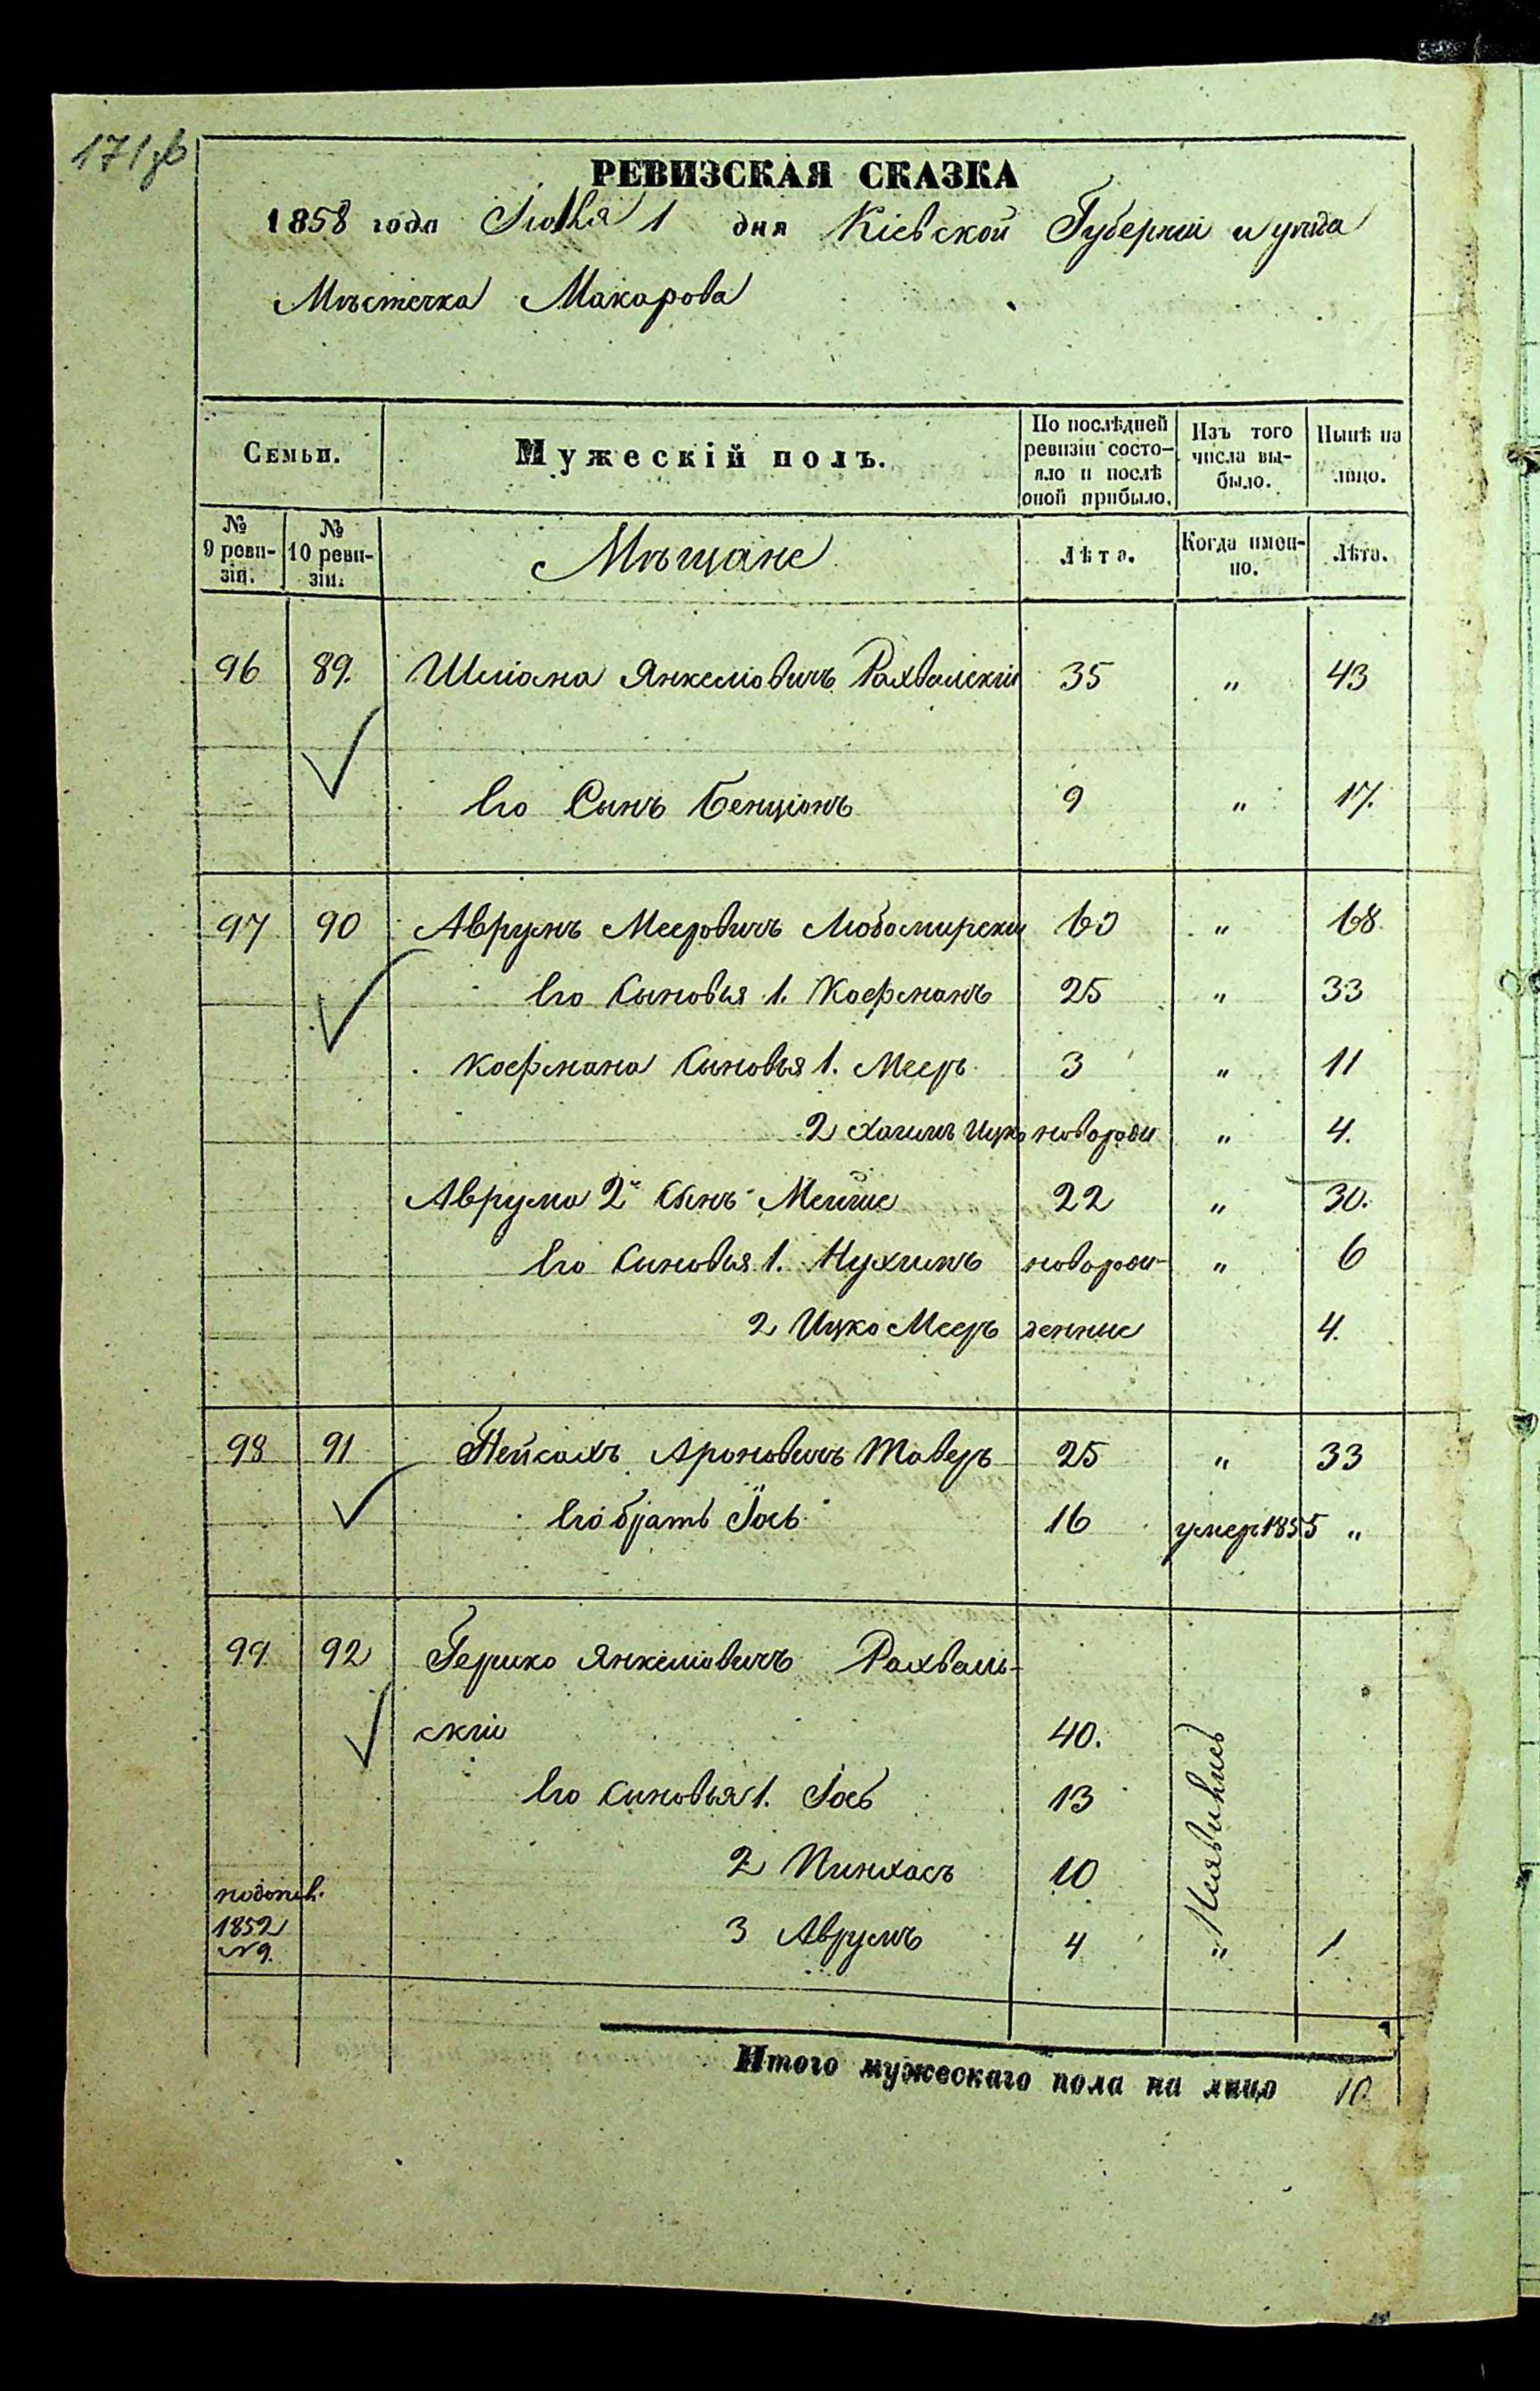 171 зв
РЕВИЗСКАЯ СКАЗКА
1858 года Іюня 1 дня Кіевской Губерніи и уѣзда
Мѣстечка Макарова
Семьи. Мужескій полъ. По послѣдней ревизіи состояло и послѣ оной прибыло. Изъ того числа выбыло. Нынѣ на лицо.
№ 9 ревизіи. № 10 ревизіи. Мѣщане Лѣта. Когда именно. Лѣта.
96 89. Шліома Янкеліовичъ Рахвальскій 35 " 43
Его Сынъ Бенціонъ 9 " 17.
97 90 Аврумъ Мееровичъ Любомирски 60 " 68
Его Сыновья 1. Кофманъ 25 " 33
Кофмана Сыновья 1. Мееръ 3 " 11
2 Хаимъ Ицко новорож " 4.
Аврума 2й Сынъ 22 " 30.
Его Сыновья 1. Нухимъ новорож- " 6
2 Ицко Мееръ денные 4.
98 91 Пейсахъ Ароновичъ Таверъ 25 " 33
Его братъ Іось 16 умеръ 1855 "
99 92 Гершко Янкеліовичъ Рахваль-
скій 40.
Его сыновья 1. Іось 13
2 Пинхасъ 10
3 Аврумъ 4 "
1852
№ 9.
Итого мужескаго пола на лицо 10